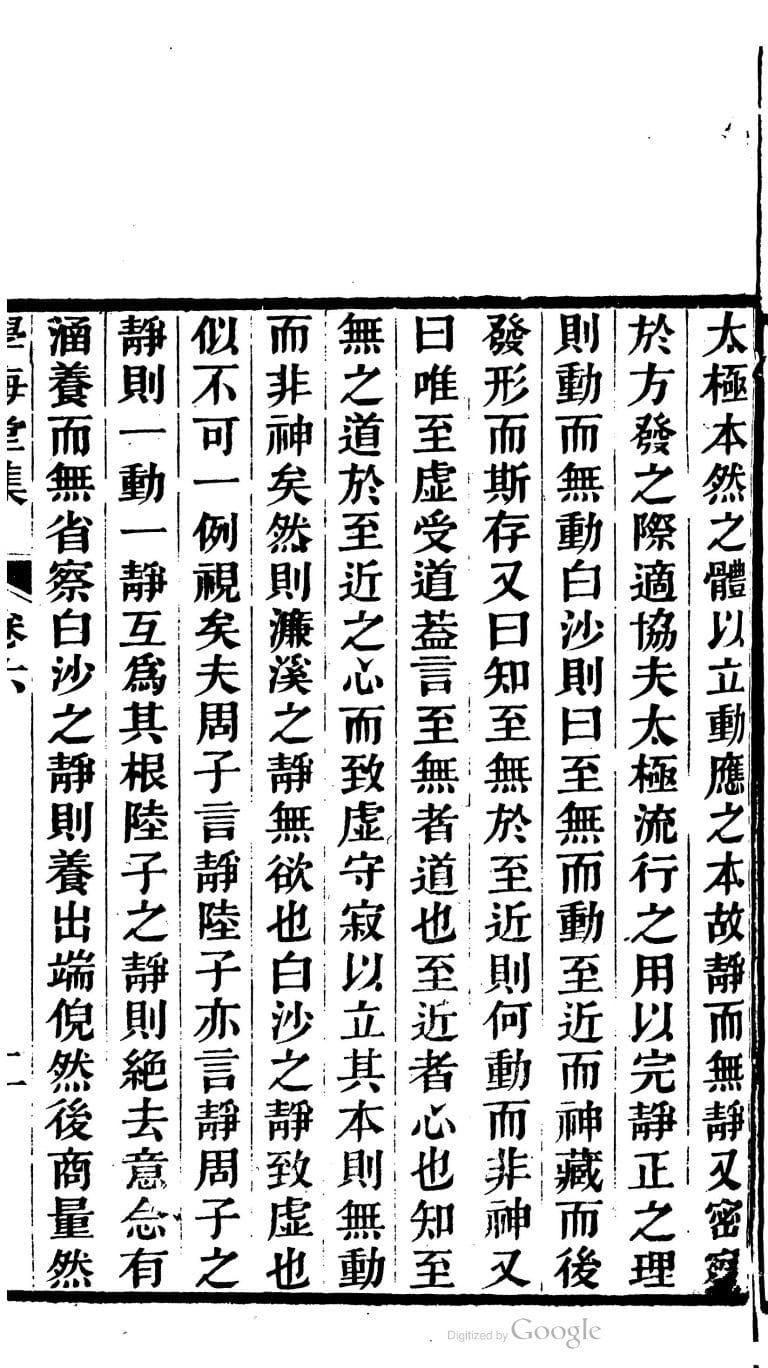 太極本然之體以立動應之本故靜而無靜又密
於方發之際適協夫太極流行之用以完靜正之理
則動而無動白沙則曰至無而動至近而神藏而後
發形而斯存又曰知至無於至近則何動而非神又
曰唯至虛受道葢言至無者道也至近者心也知至
無之道於至近之心而致虛守寂以立其本則無動
而非神矣然則濂溪之靜無欲也白沙之靜致虛也
似不可一例視矣夫周子言靜陸子亦言靜周子之
靜則一動一靜互爲其根陸子之靜則絶去意念有
涵養而無省察白沙之靜則養出端倪然後商量然
學海堂集 卷六 二
Digitized by Google